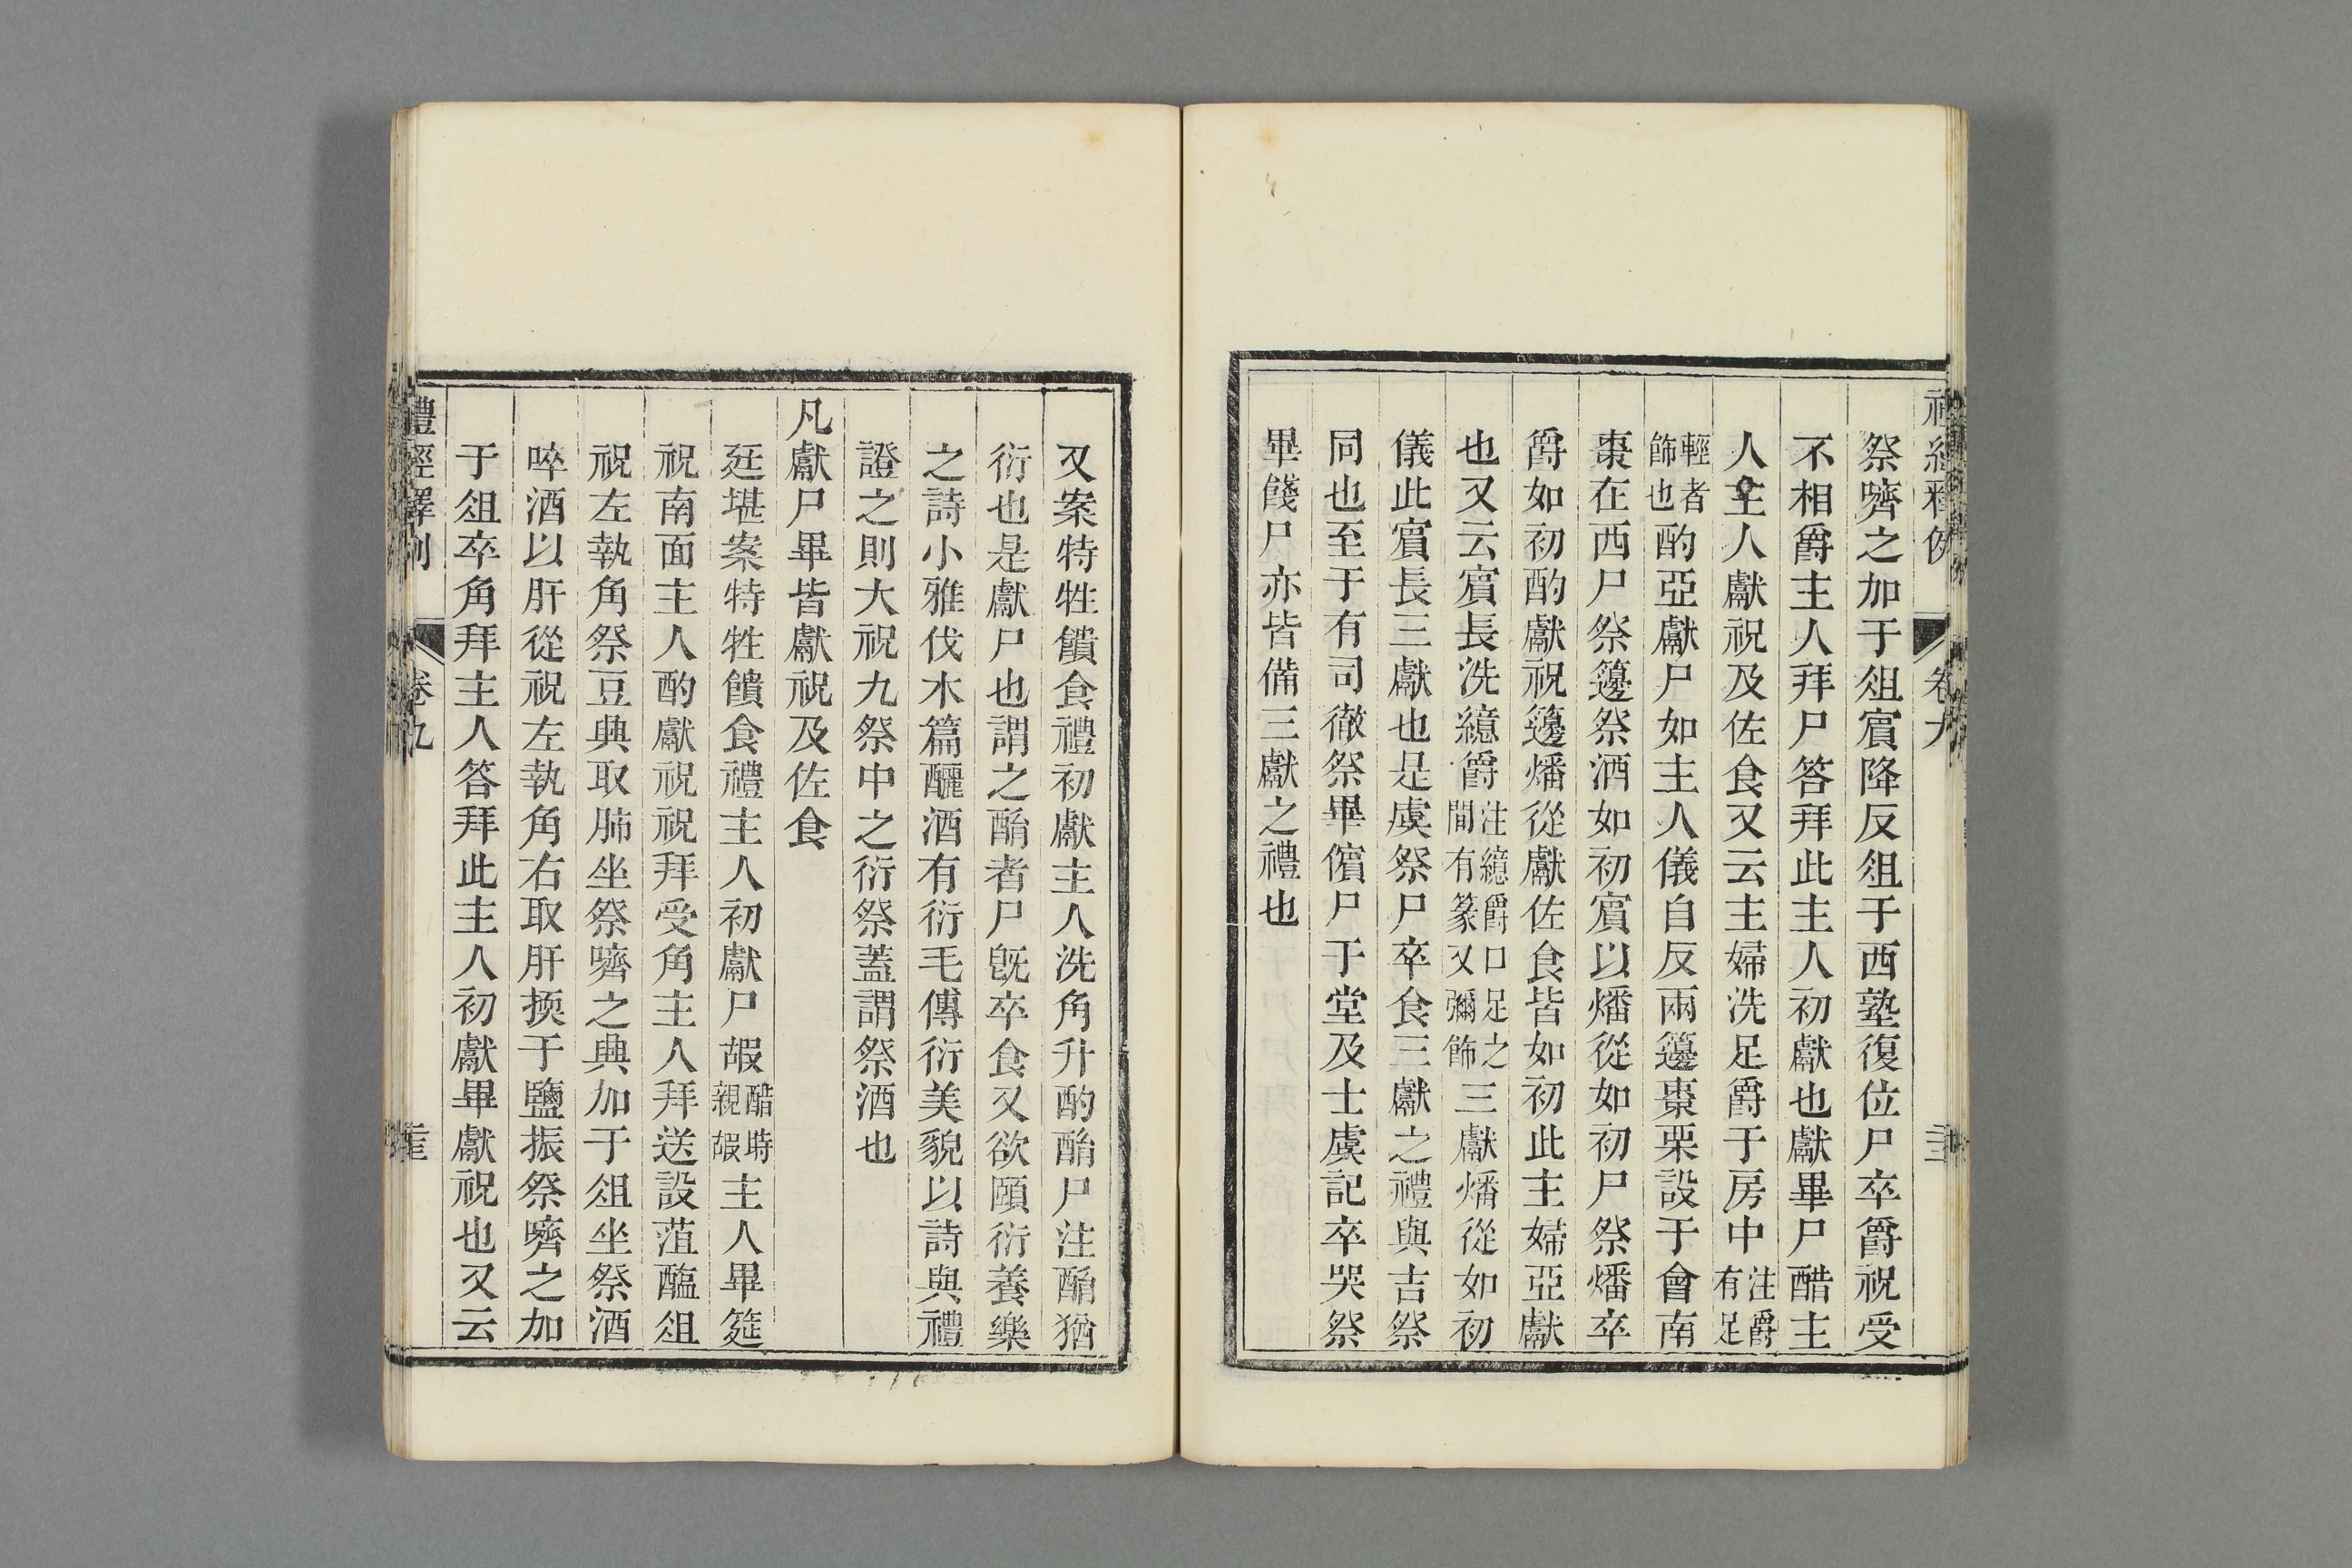 祭嚌之加于俎賔降反俎于西塾復位尸卒爵祝受
不相爵主人拜尸答拜此主人初獻也獻畢尸醋主
人主人獻祝及佐食又云主婦洗足爵于房中注爵有足
輕者飾也酌亞獻尸如主人儀自反兩籩棗栗設于會南
棗在西尸祭籩祭酒如初賔以燔從如初尸祭燔卒
爵如初酌獻祝籩燔從獻佐食皆如初此主婦亞獻
也又云賔長洗繶爵注繶爵口足之間有篆又彌飾三獻燔從如初
儀此賔長三獻也是虞祭尸卒食三獻之禮與吉祭
同也至于有司徹祭畢儐尸于堂及士虞記卒哭祭
畢餞尸亦皆備三獻之禮也
又案特牲饋食禮初獻主人洗角升酌酳尸注酳猶
衍也是獻尸也謂之酳者尸旣卒食又欲頤衍養樂
之詩小雅伐木篇釃酒有衍毛傳衍美貌以詩與禮
證之則大祝九祭中之衍祭蓋謂祭酒也
凡獻尸畢皆獻祝及佐食
廷堪案特牲饋食禮主人初獻尸嘏醋時親嘏主人畢筵
祝南面主人酌獻祝祝拜受角主人拜送設菹醢俎
祝左執角祭豆興取肺坐祭嚌之興加于俎坐祭酒
啐酒以肝從祝左執角右取肝擩于鹽振祭嚌之加
于俎卒角拜主人答拜此主人初獻畢獻祝也又云
禮經釋例 卷九